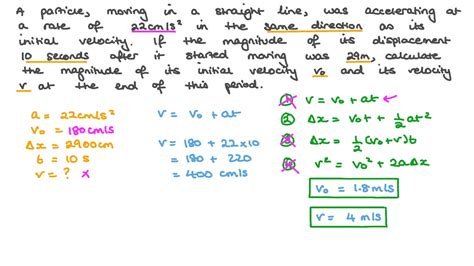 A particle, moving in a straight line, was accelerating at
a rate of 22cm/s² in the same direction as its
initial velocity. If the magnitude of its displacement
10 seconds after it started moving was 29m, calculate
the magnitude of its initial velocity v₀ and its velocity
v at the end of this period.
a = 22cm/s²
v₀ = 180cm/s
Δx = 2900cm
t = 10 s
v = ? x
v = v₀ + at
v = 180 + 22×10
= 180 + 220
= 400 cm/s
1 v = v₀ + at ←
2 Δx = v₀t + 1/2 at²
3 Δx = 1/2 (v₀+v)t
4 v² = v₀² + 2aΔx
v₀ = 1.8m/s
v = 4 m/s